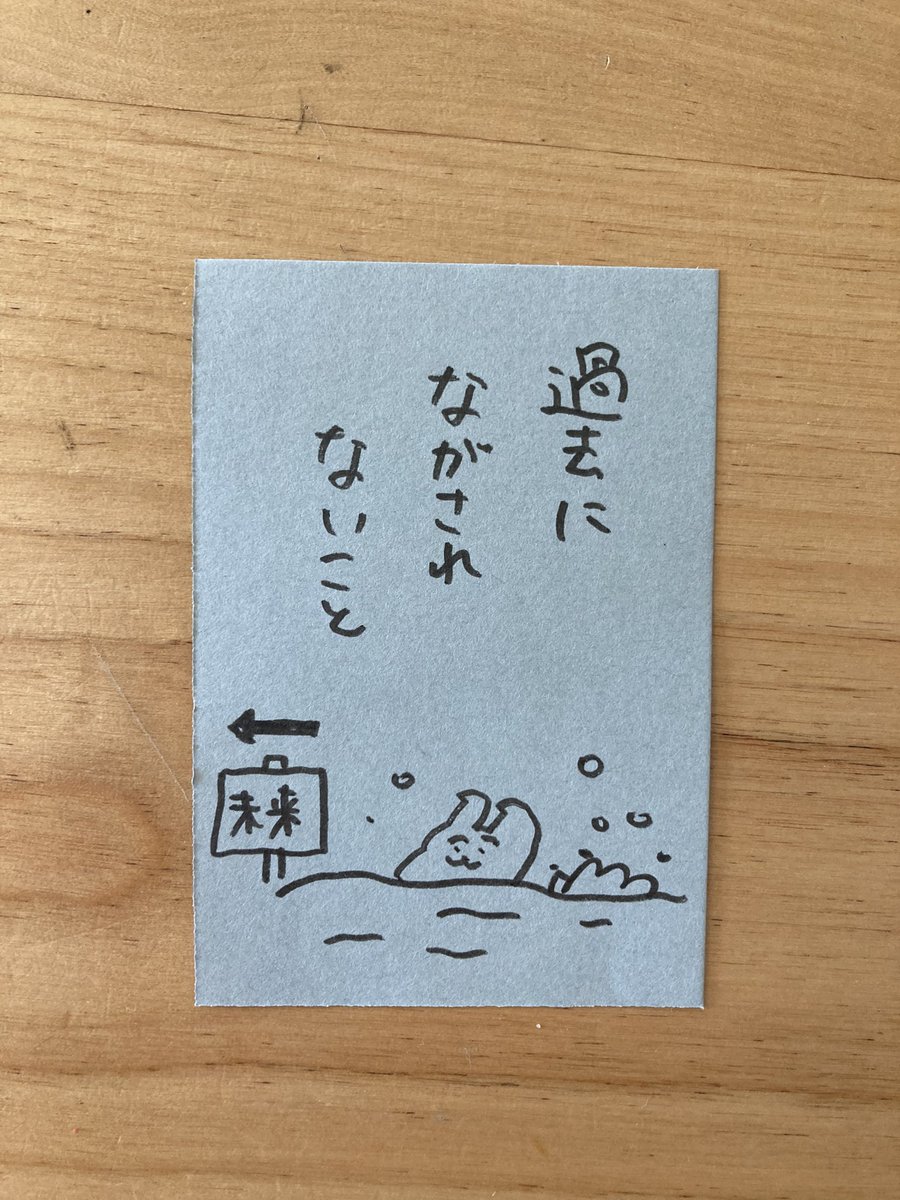 過去に
ながされ
ないこと
未来